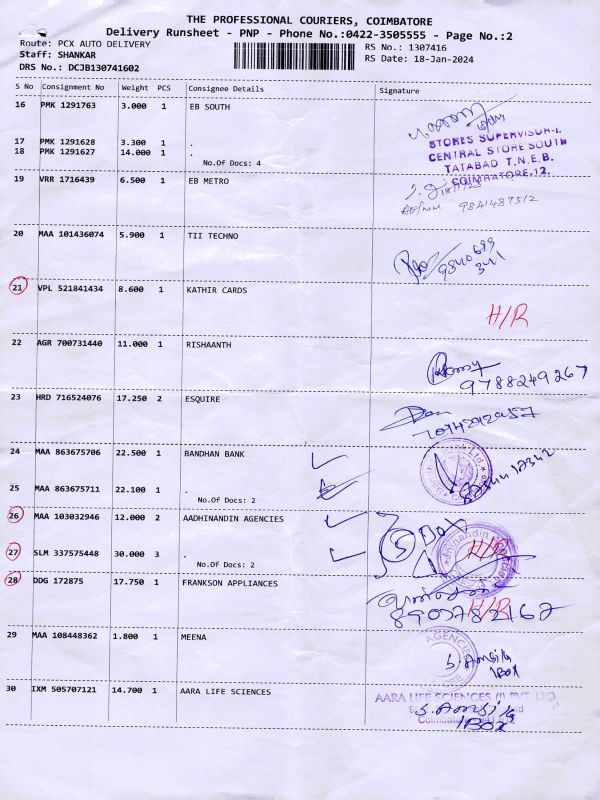 THE PROFESSIONAL COURIERS, COIMBATORE
Delivery Runsheet - PNP - Phone No.:0422-3505555 - Page No.:2
Route: PCX AUTO DELIVERY
RS No.: 1307416
Staff: SHANKAR
RS Date: 18-Jan-2024
DRS No.: DCJB130741602
S No Consignment No Weight PCS Consignee Details Signature
16 PMK 1291763 3.000 1 EB SOUTH
17 PMK 1291628 3.300 1 .
18 PMK 1291627 14.000 1 .
No.Of Docs: 4
STORES SUPERVISOR-I.
CENTRAL STORE SOUTH
TATABAD T.N.E.B.
COIMBATORE.12.
19 VRR 1716439 6.500 1 EB METRO
9841487512
20 MAA 101436074 5.900 1 TII TECHNO
9840699
341
21 VPL 521841434 8.600 1 KATHIR CARDS
H/R
22 AGR 700731440 11.000 1 RISHAANTH
9788249267
23 HRD 716524076 17.250 2 ESQUIRE
24 MAA 863675706 22.500 1 BANDHAN BANK
25 MAA 863675711 22.100 1 .
No.Of Docs: 2
26 MAA 103032946 12.000 2 AADHINANDIN AGENCIES
5 Box
27 SLM 337575448 30.000 3 .
H/R
No.Of Docs: 2
28 DDG 172875 17.750 1 FRANKSON APPLIANCES
H/R
29 MAA 108448362 1.800 1 MEENA
AGENCIES
S. Ansik
1Box
30 IXM 505707121 14.700 1 AARA LIFE SCIENCES
AARA LIFE SCIENCES (I) PVT. LTD.
S. Ansik
1Box